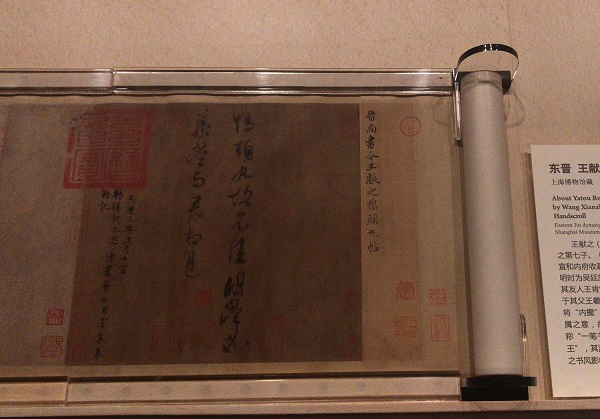 晉尚書令王獻之鴨頭丸帖
鴨頭丸故不佳明當必
集當與君相見
天曆三年正月十二日
勑賜柯九思侍書學士臣虞集奉
勑記
东晋 王献
上海博物馆藏
About Yatou
by Wang Xianz
Handscroll
Eastern Jin dynasty
Shanghai Museum
王献之(
之第七子。
宣和内府收
明时为吴廷
其友人王肯
于其父王羲
将“内擫”
属之意,
称“一笔
王”,其
之书风影